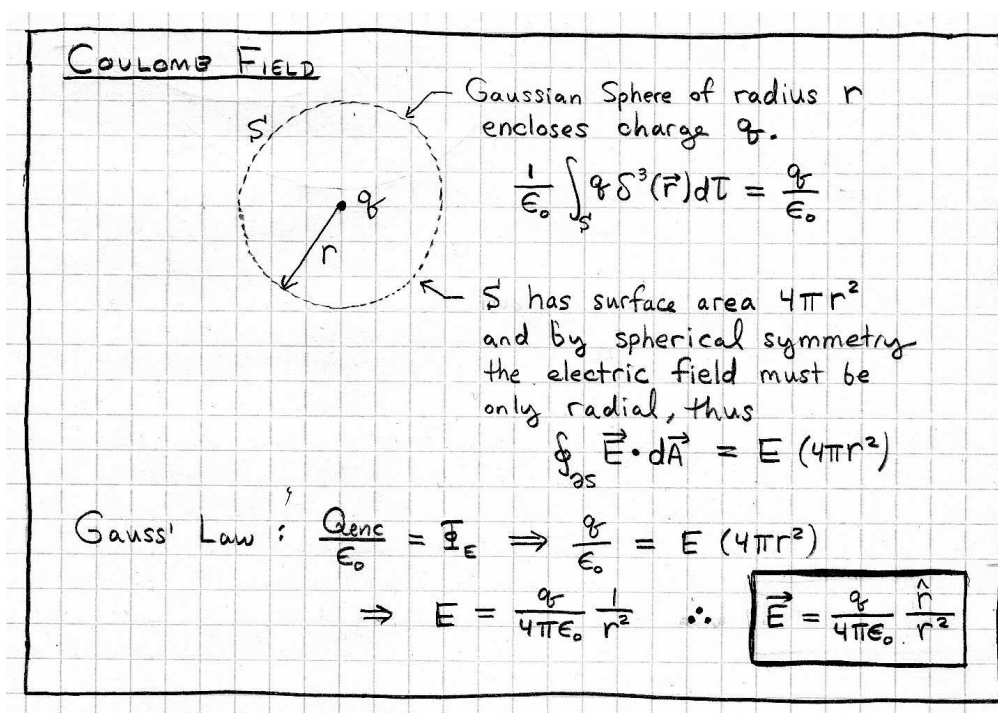 COULOMB FIELD
Gaussian Sphere of radius r
encloses charge q.
S
q
r
1/ε₀ ∫_S q δ³(r⃗)dτ = q/ε₀
S has surface area 4πr²
and by spherical symmetry
the electric field must be
only radial, thus
∮_∂S E⃗ · dA⃗ = E (4πr²)
Gauss' Law : Qenc/ε₀ = Φ_E ⇒ q/ε₀ = E (4πr²)
⇒ E = q/4πε₀ 1/r² ∴ E⃗ = q/4πε₀ r̂/r²